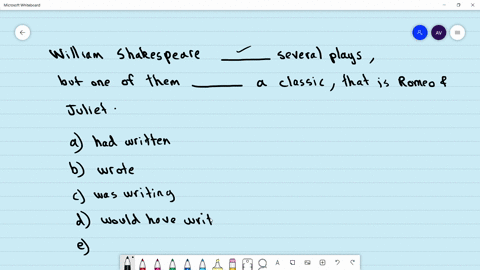 Microsoft Whiteboard
AV
William Shakespeare ______ several plays,
but one of them ______ a classic, that is Romeo &
Juliet.
a) had written
b) wrote
c) was writing
d) would have writ
e)